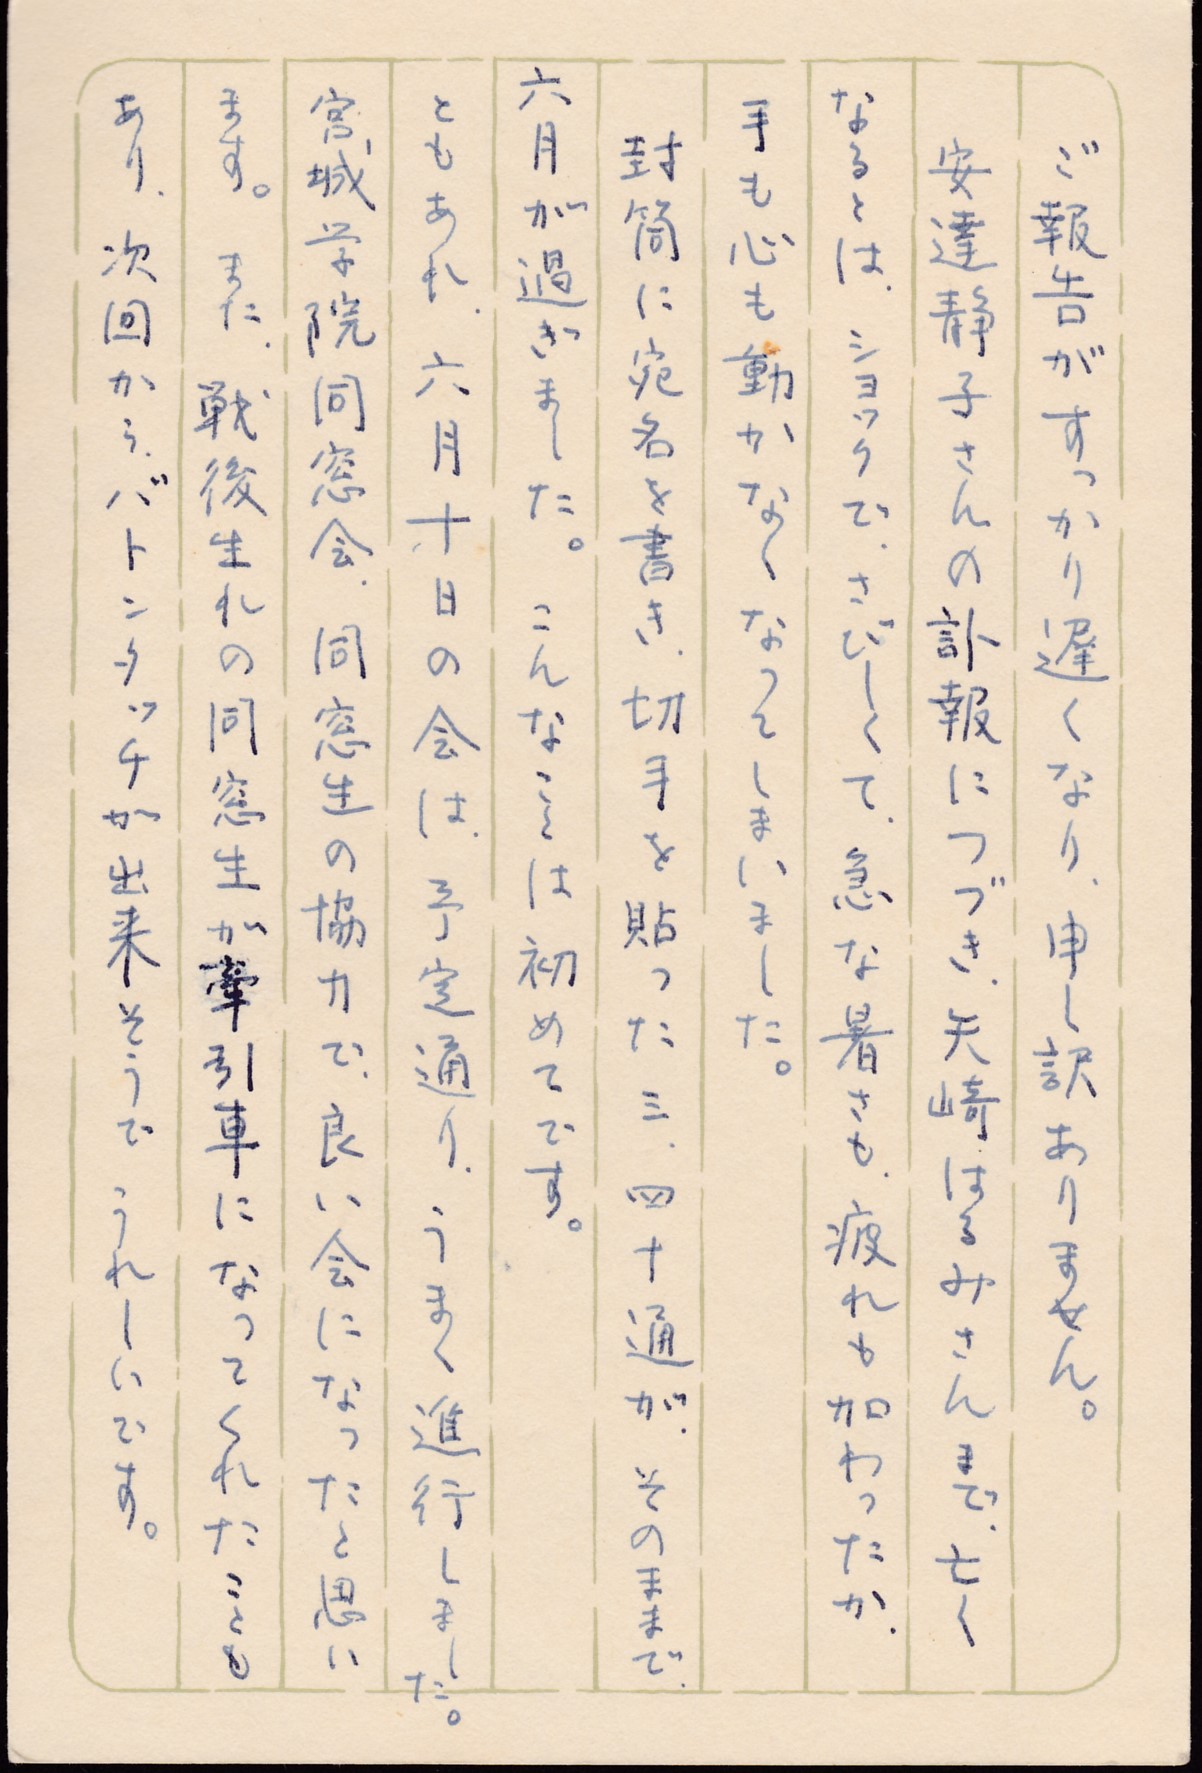 ご報告がすっかり遅くなり、申し訳ありません。
安達静子さんの訃報につづき、矢崎はるみさんまで、亡く
なるとは、ショックで、さびしくて、急な暑さも、疲れも加わったか、
手も心も動かなくなってしまいました。
封筒に宛名を書き、切手を貼った三、四十通が、そのままで、
六月が過ぎました。こんなことは初めてです。
ともあれ、六月十日の会は、予定通り、うまく進行しました。
宮城学院同窓会、同窓生の協力で、良い会になったと思い
ます。また、戦後生れの同窓生が牽引車になってくれたことも
あり、次回から、バトンタッチが出来そうで うれしいです。